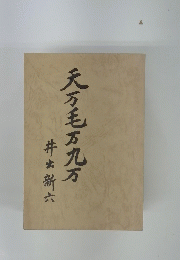 天万毛万九万
井出新六